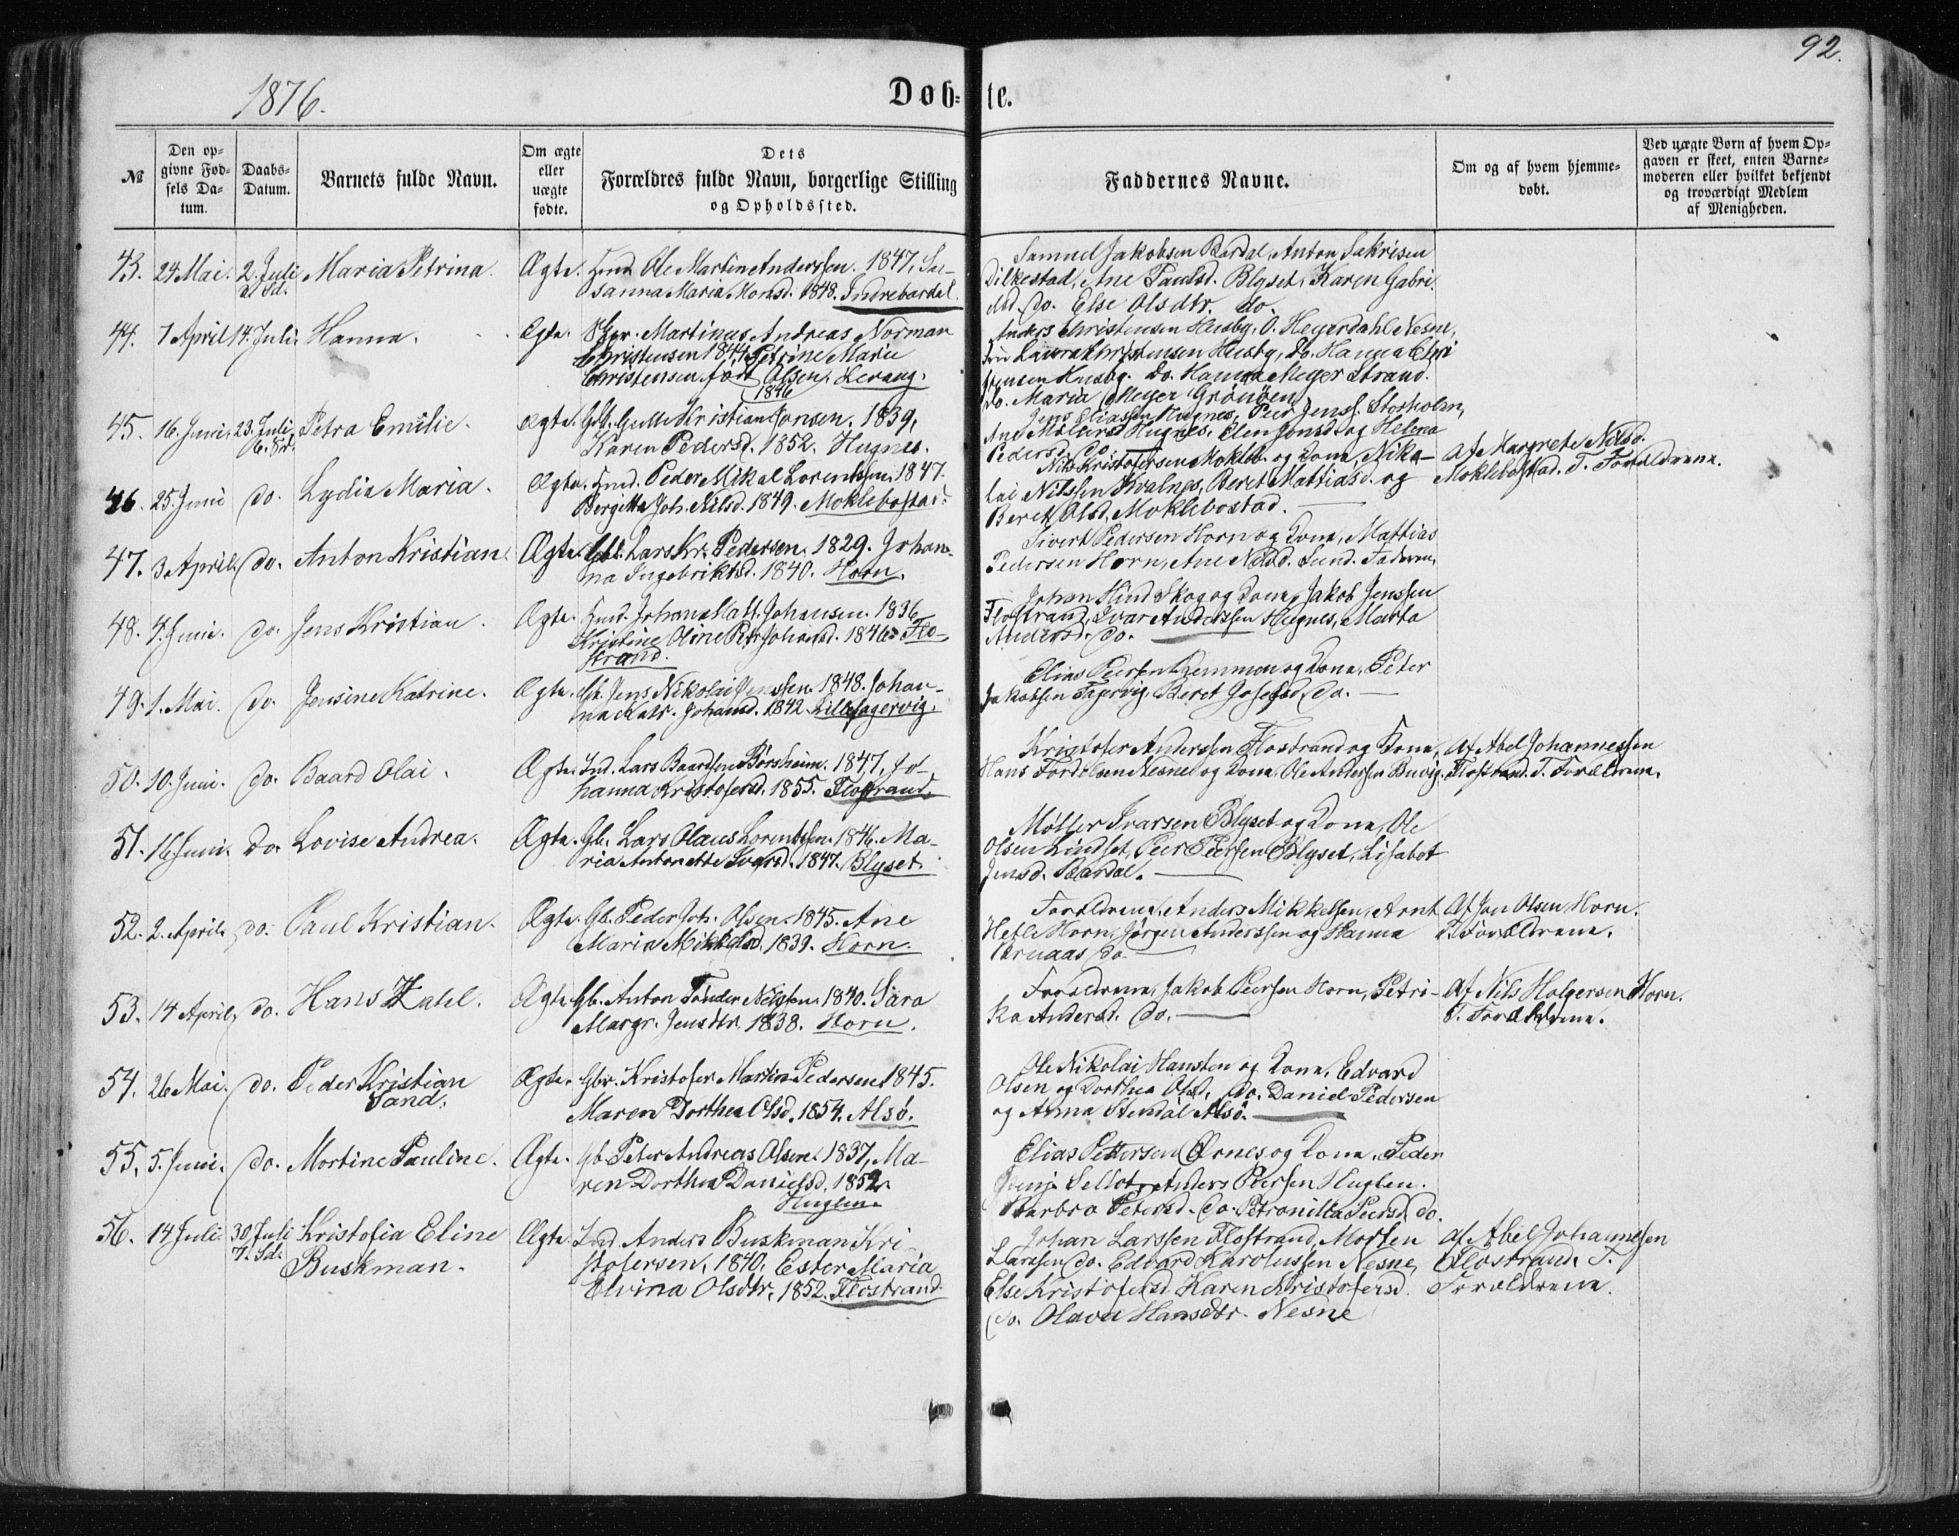 92.
1876.
Døb-te.
№
Den op-
givne Fød-
sels Da-
tum.
Daabs-
Datum.
Barnets fulde Navn.
Om ægte
eller
uægte
fødte.
Dets
Forældres fulde Navn, borgerlige Stilling
og Opholdssted.
Faddernes Navne.
Om og af hvem hjemme-
døbt.
Ved uægte Børn af hvem Op-
gaven er skeet, enten Barne-
moderen eller hvilket bekjendt
og troværdigt Medlem
af Menigheden.
43. 24 Mai. 2. Juli Maria Petrina. Ægte. Ole Martin Anderssen. 1847, Su-
sanna Maria Monsd. 1848. Indrebardal.
Samuel Jakobsen Bardal, Anton Sakrisen
Dilkestad, Ane Paulsd. Blyset, Karen Gabri-
elsd. do. Else Olsdtr. do.
44. 7 April 14. Juli Hanna. Ægte. Martinus Andreas Norman
Christensen 1844, Petrine Marie
Christensen født Olsen, Levang.
1846
Anders Christensen Husby, O. Hegerdahl Nesne,
Laura Christensen Husby, do. Hanna Chri
stensen Husby. do. Hanna Meyer Strand.
do. Maria Meyer Grönöen
45. 16. Juni. 23. Juli Petra Emilie. Ægte. Kristian Jonsen. 1839,
Karen Pedersd. 1852. Hugnes.
Jens Eliassen Hugnes, Peer Jenss. Storholm,
Hugnes, Elen Jonsd. og Helena
Pedersd. do.
46. 25. Juni do. Lydia Maria. Ægte. Peder Mikal Lorentsen. 1847.
Bergitta Joh. Nilsd. 1849. Moklebostad.
Nils Kristofersen Mokleb. og Kone, Niko-
lai Nilssen Kvalnes, Beret Mattiasd. og
Beret Olsd. Moklebostad.
af Margrete Nilsd.
Moklebostad. T. Forældrene.
47. 3 April. do. Anton Kristian. Ægte. Lars Kr. Pedersen. 1829. Johan-
na Ingebriktsd. 1840. Horn.
Sivert Pedersen Horn og Kone, Mattias
Pedersen Horn, Ane Nilsd. Sund. Faderen.
48. 4. Juni. do. Jens Kristian. Ægte. Johansen. 1836
Kristine Oline Johansd. 1846. Flo-
strand.
Johan Hind Skog og Kone, Jakob Jenssen
Flostrand, Ivar Anderssen Hugnes, Marta
Andersd. do.
49. 1. Mai. do. Jensine Katrine. Ægte. Gb. Jens Nikolai Jenssen. 1848. Johan-
na Johansd. 1842. Lillefagervig.
Elias Peersen Remmen og Kone, Peter
Jakobsen Fagervig, Beret Josefsd. do.
50. 10. Juni. do. Baard Olai. Ægte. Ind. Lars Baardsen Børsheim. 1847, Jo-
hanna Kristofersd. 1855. Flostrand.
Kristofer Andersen Flostrand og Kone,
Hans Nesne og Kone, Ole Andersen Buvig.
Af Abel Johannessen
Flostrand. T. Forældrene.
51. 16 Juni. do. Lovise Andrea. Ægte. Gb. Lars Olaus Lorentsen. 1846. Ma-
ria Antonette Ivarsd. 1847. Blyset.
Møller Ivarsen Blyset og Kone, Ole
Olsen Lindset, Peer Peersen Blyset, Lisabet
Jensd. Bardal.
52. 2. April. do. Paul Kristian. Ægte. Gb. Peder Joh. Olsen. 1845. Ane
Maria Mikkelsd. 1839. Horn.
Forældrene, Anders Mikkelsen, Arnt
Horn, Jørgen Anderssen og Hanna
do.
Af Jon Olsen Horn.
T. Forældrene.
53. 14 April, do. Hans Ægte Gb. Anton Tønder Nilssen. 1840. Sara
Margr. Jensdtr. 1838. Horn.
Forældrene, Jakob Peersen Horn, Petri-
ka Andersd. do.
Af Nils Holgersen Horn.
T. Forældrene.
54. 26 Mai. do. Peder Kristian
Sand. Ægte. Gbr. Kristofer Martin Pedersen 1845.
Maren Dorthea Olsd. 1854. Alsø.
Ole Nikolai Hansten og Kone, Edvard
Olsen og Dorthea Olsd. do. Daniel Pedersen
og Anna Stendal Alsø.
55. 5. Juni. do. Martine Pauline. Ægte. Gb Peter Andreas Olsen. 1837, Ma-
ren Dorthea Danielsd. 1852.
Huglen.
Elias Pettersen Ørnes og Kone, Peder
Sellot, Anders Peersen Huglen.
Barbro Petersd. do. Petronilla Peersd. do.
56. 14 Juli. 30 Juli Kristofia Eline
7. Sd. Buskman. Ægte. Ind Anders Buskman Kri-
stofersen, 1840, Ester Maria
Elvina Olsdtr. 1852. Flostrand.
Johan Larssen Flostrand, Morten
Larssen do. Edvard Karolussen Nesne,
Else Kristofersd. Karen Kristofersd.
do. Olava Hansdtr. Nesne
af Abel Johannessen
Flostrand. T.
Forældrene.